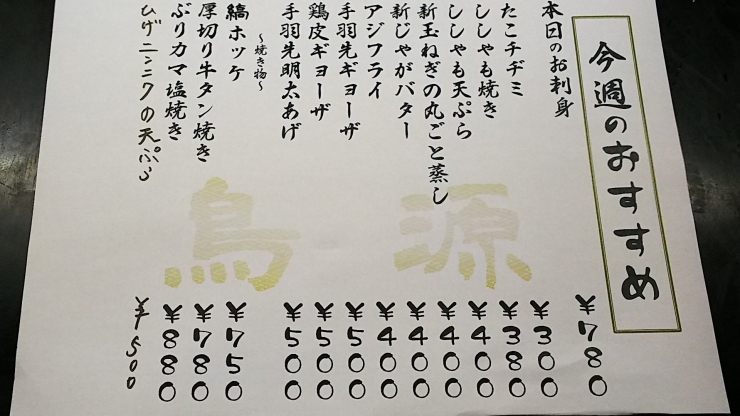 今週のおすすめ
本日のお刺身 ¥780
たこチヂミ ¥300
ししゃも焼き ¥380
ししゃも天ぷら ¥400
新玉ねぎの丸ごと蒸し ¥400
新じゃがバター ¥400
アジフライ ¥400
手羽先ギョーザ ¥500
鶏皮ギョーザ ¥500
手羽先明太あげ ¥500
～焼き物～
縞ホッケ ¥750
厚切り牛タン焼き ¥780
ぶりカマ塩焼き ¥880
ひげニンニクの天ぷら ¥500
鳥源